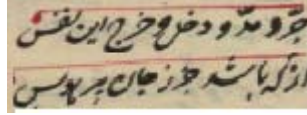 جزر و مدّ و دخل و خرج این نفس
از که باشد جز ز جان پر هوس